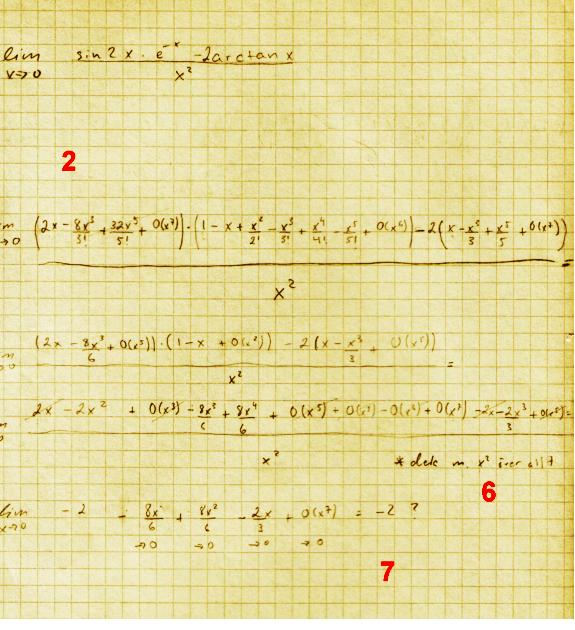 lim sin 2x · e^-x - 2arctan x
x→0 x²
2
(2x - 8x³/3! + 32x⁵/5! + O(x⁷)) · (1 - x + x²/2! - x³/3! + x⁴/4! - x⁵/5! + O(x⁶)) - 2(x - x³/3 + x⁵/5 + O(x⁷)) =
→0 x²
(2x - 8x³/6 + O(x⁵)) · (1 - x + O(x²)) - 2(x - x³/3 + O(x⁵)) =
x²
2x - 2x² + O(x³) - 8x³/6 + 8x⁴/6 + O(x⁵) + - + O(x⁷) - 2x - 2x³/3 + O(x⁵) =
x²
* dela m. x² över allt
6
lim -2 - 8x/6 + 8x²/6 - 2x/3 + O(x⁷) = -2 ?
x→0 →0 →0 →0 →0
7